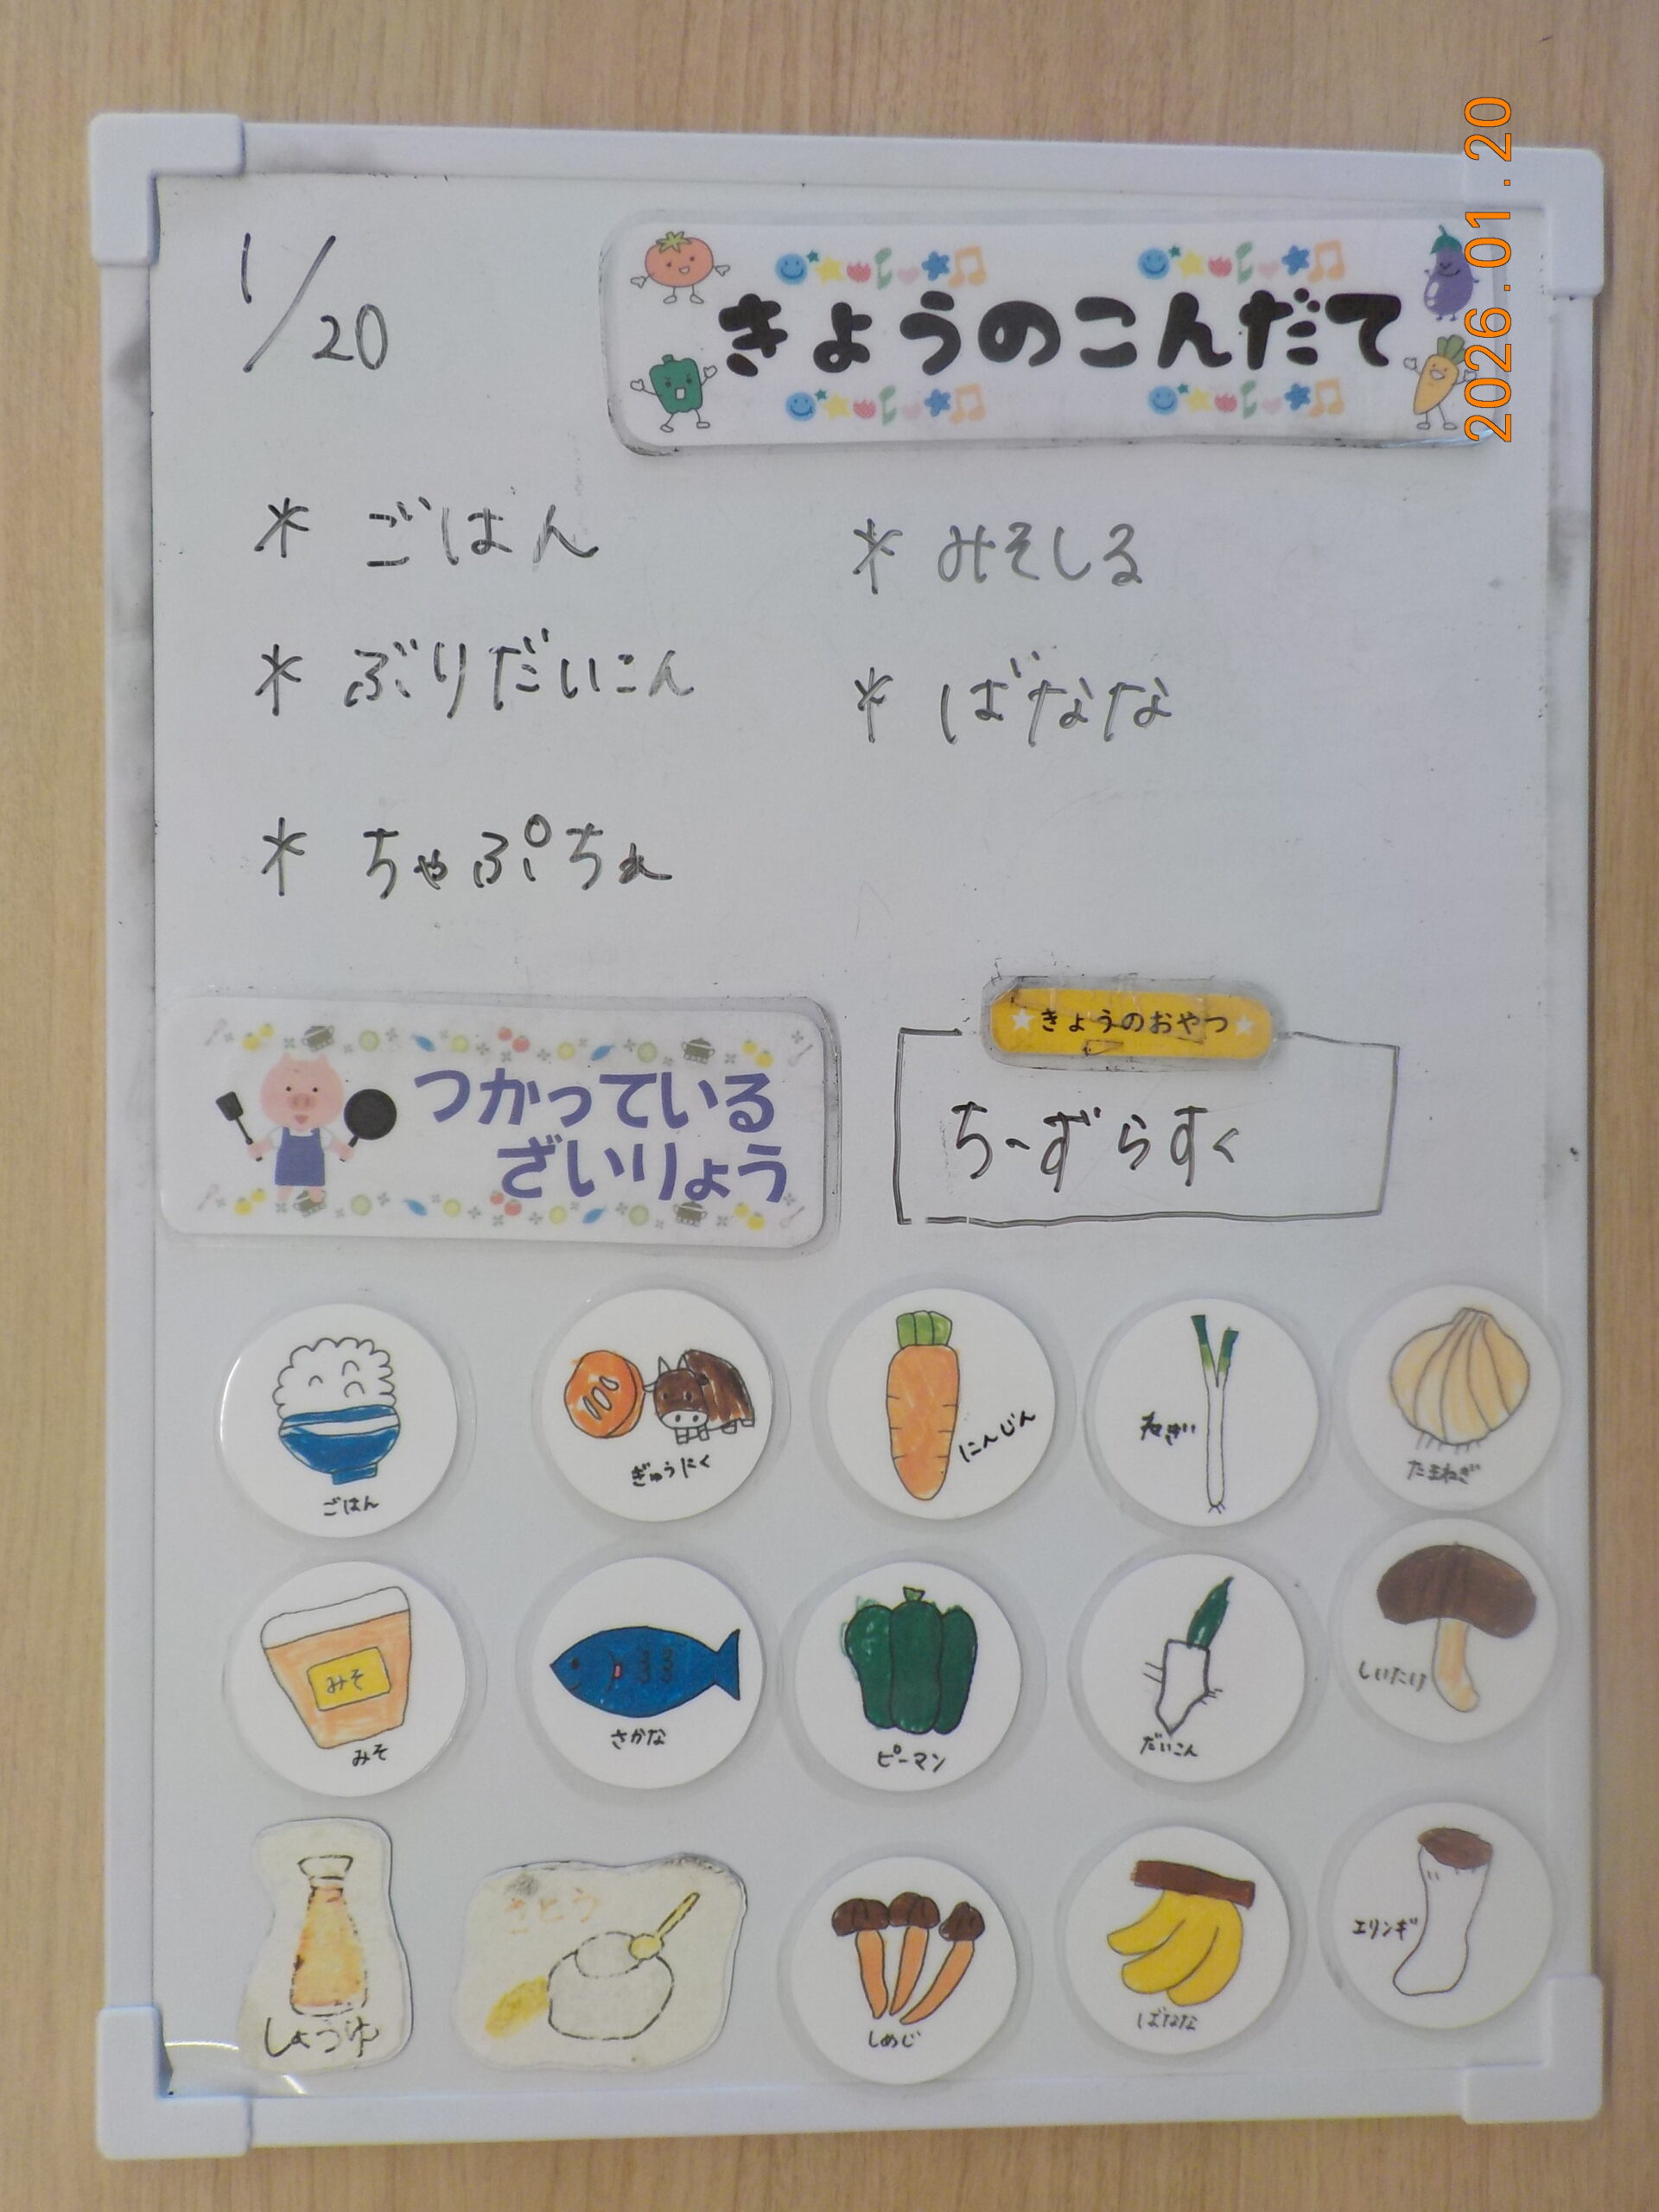 1/20
きょうのこんだて
2026.01.20
* ごはん
* みそしる
* ぶりだいこん
* ばなな
* ちゃぷちぇ
つかっている
ざいりょう
きょうのおやつ
ちーずらすく
ごはん
ぎゅうにく
にんじん
ねぎ
たまねぎ
みそ
みそ
さかな
ピーマン
だいこん
しいたけ
しょうゆ
さとう
しめじ
ばなな
エリンギ